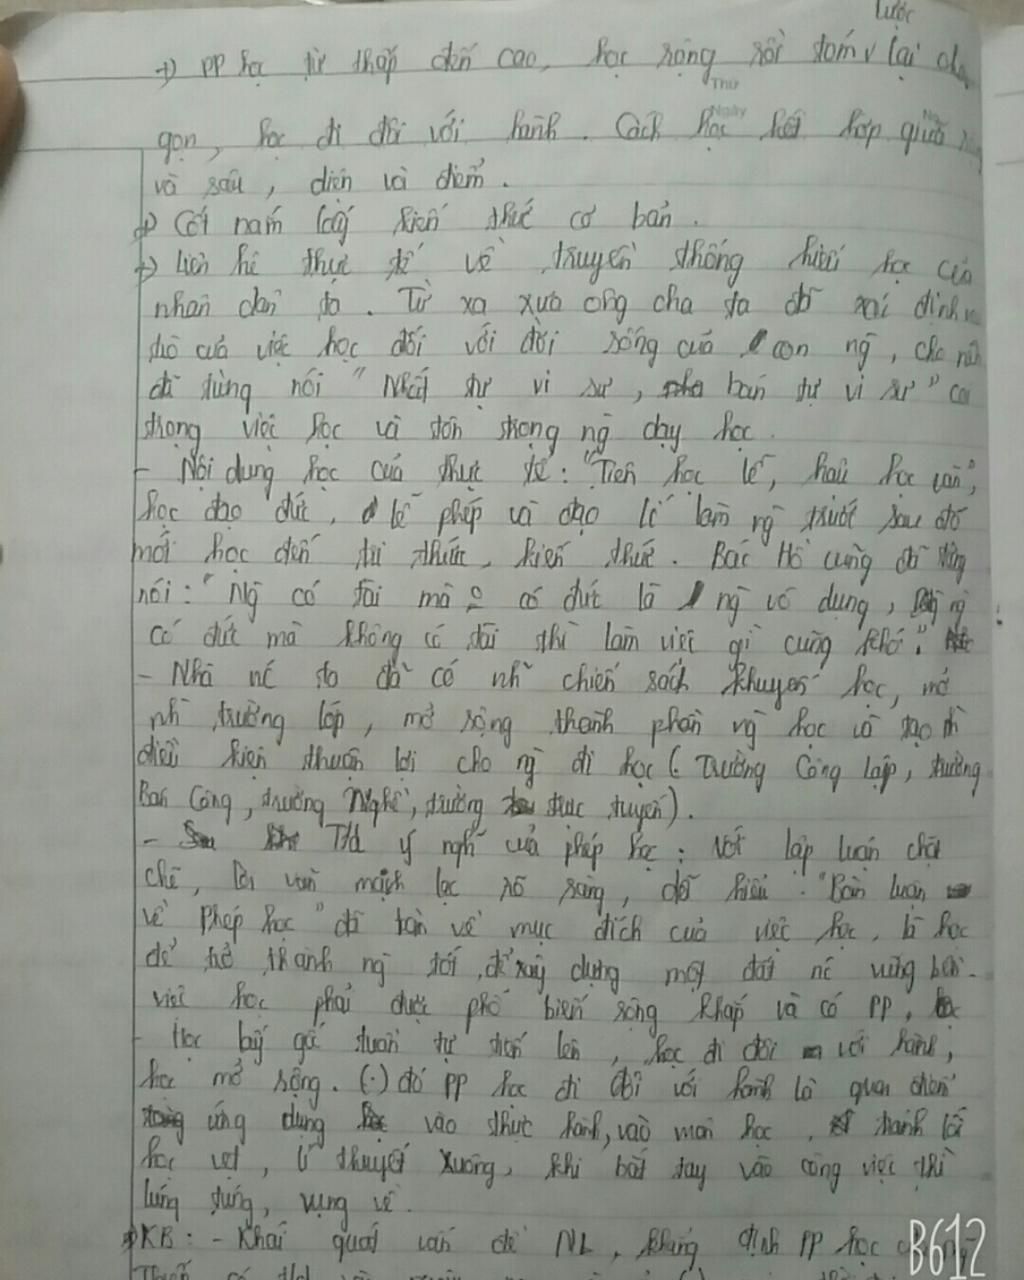 lược
+) PP học từ thấp đến cao, học rộng rồi tóm v lại cho
Thứ
Ngày
gọn, học đi đôi với hành. Cách học kết hợp giữa
và sâu, diện và điểm.
+) Cốt nắm lấy kiến thức cơ bản.
+) Liên hệ thực tế về truyền thống hiếu học của
nhân dân ta. Từ xa xưa ông cha ta đã xác định
trò của việc học đối với đời sống của con ng̃, cho nên
đã từng nói "Nhất tự vi sư, bán tự vi sư" coi
trọng việc học và tôn trọng ng̃ dạy học.
- Nội dung học của thực tế: "Tiên học lễ, hậu học văn",
học đạo đức, lễ phép và đạo lí làm ng̃ trước sau đó
mới học đến tri thức, kiến thức. Bác Hồ cũng đã từng
nói: "Ng̃ có tài mà o có đức là ng̃ vô dụng, ng̃
có đức mà không có tài thì làm việc gì cũng khó".
- Nhà nc ta đã có nh̃ chiến sách khuyến học, mở
nh̃ trường lớp, mở rộng thành phần ng̃ học và tạo đ
điều kiện thuận lợi cho ng̃ đi học (Trường Công lập, trường
Bán Công, trường Nghề, trường trực tuyến).
- T/d ý nghĩ của phép học: Với lập luận chặt
chẽ, lời văn mạch lạc rõ ràng, dễ hiểu. "Bàn luận
về phép học" đã bàn về mục đích của việc học, là học
để trở thành ng̃ tốt, để xây dựng một đất nc vững bền.
việc học phải được phổ biến rộng khắp và có PP,
- Học bấy giờ tuần tự tiến lên, học đi đôi với hành,
học mở rộng. (.) đó PP học đi đôi với hành là quan điểm
ứng dụng vào thực hành, vào môn học, tránh lối
học vẹt, lí thuyết xuông, khi bắt tay vào công việc thì
lúng túng, vụng về.
KB: - Khái quát vấn đề NL, khẳng định PP học
B612